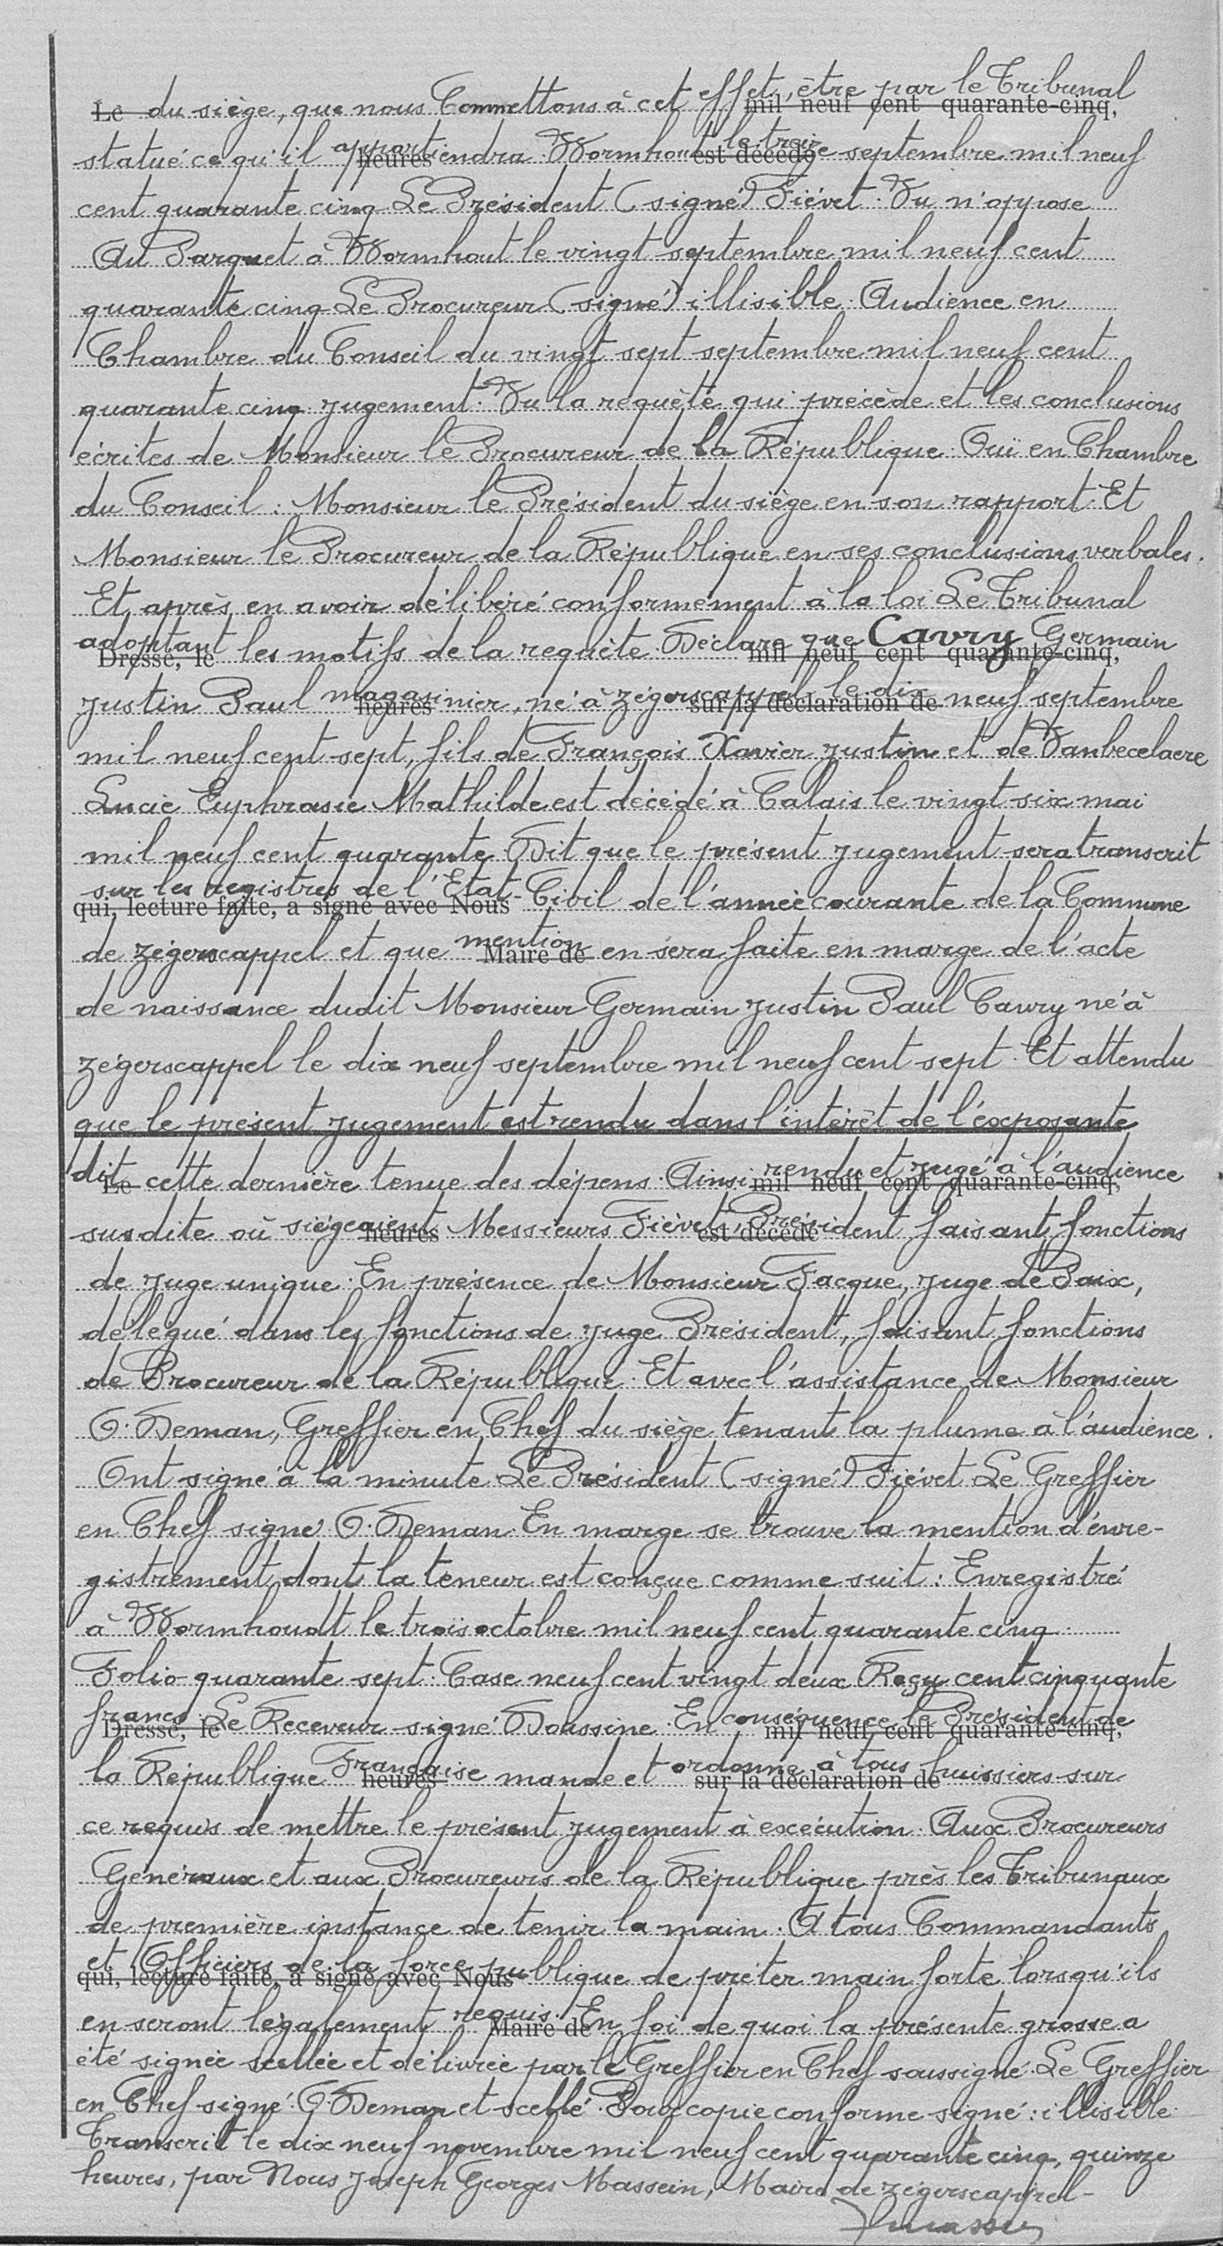 Le du siège, que nous Commettons à cet effet, être par le Tribunal mil neuf cent quarante-cinq,
statué ce qu'il appartiendra. Wormhout le treize septembre mil neuf heures est décédé
cent quarante cinq Le Président (signé) Fiévet. Vu n'oppose
Au Parquet à Wormhout le vingt septembre mil neuf cent
quarante cinq Le Procureur (signé) illisible. Audience en
Chambre du Conseil du vingt sept septembre mil neuf cent
quarante cinq jugement. Vu la requête qui précède et les conclusions
écrites de Monsieur le Procureur de la République Ouï en Chambre
du Conseil : Monsieur le Président du siège en son rapport. Et
Monsieur le Procureur de la République en ses conclusions verbales.
Et après en avoir délibéré conformément à la loi Le Tribunal
adoptant les motifs de la requête. Déclare que Cavry Germain Dressé, le mil neuf cent quarante-cinq,
Justin Paul magasinier, né à Zégerscappel le dix neuf septembre heures sur la déclaration de
mil neuf cent sept, fils de François Xavier Justin et de Vanbecelaere
Lucie Euphrasie Mathilde est décédé à Calais le vingt six mai
mil neuf cent quarante Dit que le présent jugement sera transcrit
sur les registres de l'Etat-Civil de l'année courante de la Commune qui, lecture faite, a signé avec Nous
de Zégerscappel et que mention en sera faite en marge de l'acte Maire de
de naissance dudit Monsieur Germain Justin Paul Cavry né à
Zégerscappel le dix neuf septembre mil neuf cent sept. Et attendu
que le présent jugement est rendu dans l'intérêt de l'exposante
dit cette dernière tenue des dépens. Ainsi rendu et jugé à l'audience Le mil neuf cent quarante-cinq,
susdite où siégeaient Messieurs Fiévet, Président faisant fonctions heures est décédé
de juge unique. En présence de Monsieur Facque, juge de Paix,
délégué dans les fonctions de juge Président, faisant fonctions
de Procureur de la République. Et avec l'assistance de Monsieur
O. Deman, Greffier en Chef du siège tenant la plume à l'audience.
Ont signé à la minute Le Président (signé) Fiévet Le Greffier
en Chef signé O. Deman. En marge se trouve la mention d'enre-
gistrement dont la teneur est conçue comme suit : Enregistré
à Wormhoudt le trois octobre mil neuf cent quarante cinq
Folio quarante sept. Case neuf cent vingt deux Reçu cent cinquante
francs. Le Receveur signé Doussine. En conséquence le Président de Dressé, le mil neuf cent quarante-cinq,
la République Française mande et ordonne à tous huissiers sur heures sur la déclaration de
ce requis de mettre le présent jugement à exécution. Aux Procureurs
Généraux et aux Procureurs de la République près les Tribunaux
de première instance de tenir la main. A tous Commandants
et Officiers de la force publique de prêter main forte lorsqu'ils qui, lecture faite, a signé avec Nous
en seront légalement requis. En foi de quoi la présente grosse a Maire de
été signée scellée et délivrée par le Greffier en Chef soussigné. Le Greffier
en Chef signé O. Deman et scellé. Pour copie conforme signé : illisible
Transcrit le dix neuf novembre mil neuf cent quarante cinq, quinze
heures, par Nous Joseph Georges Massein, Maire de Zégerscappel-